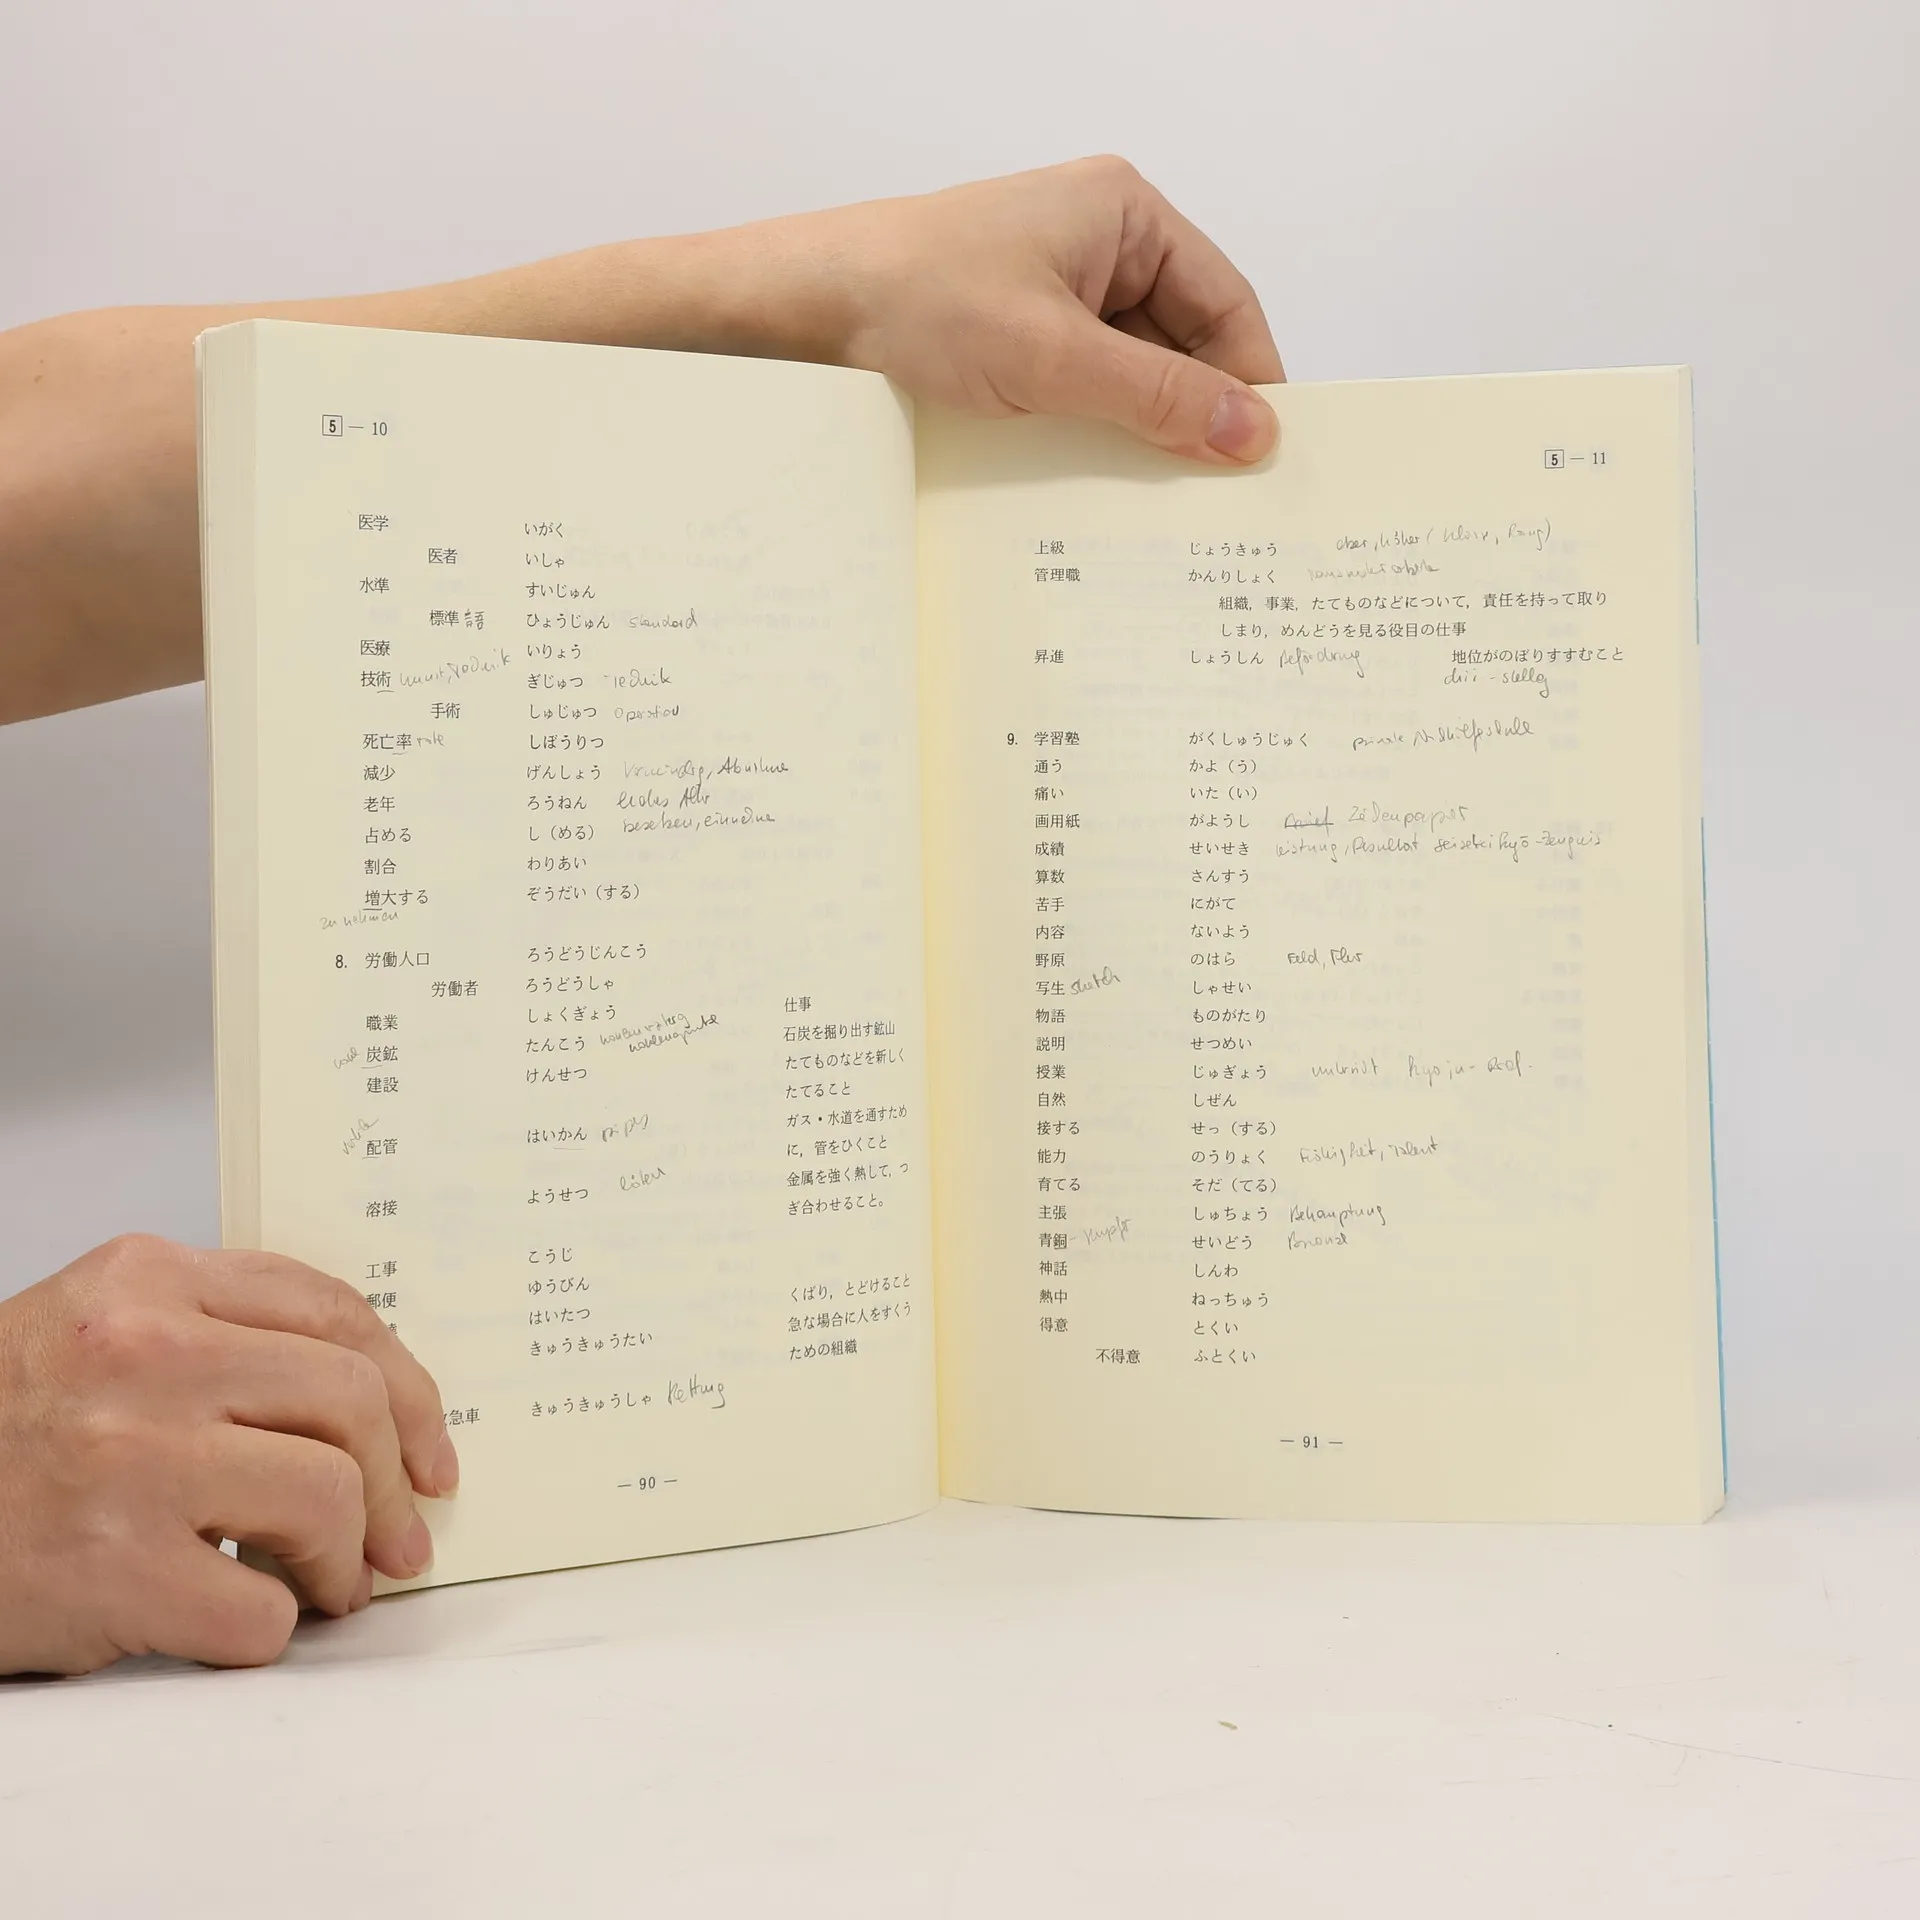 5 — 10
医学 いがく
医者 いしゃ
水準 すいじゅん
標準語 ひょうじゅん standard
医療 いりょう
技術 Kunst, Technik ぎじゅつ Technik
手術 しゅじゅつ Operation
死亡率 rate しぼうりつ
減少 げんしょう Abnahme
老年 ろうねん hohes Alter
占める し（める） besetzen, einnehmen
割合 わりあい
増大する ぞうだい（する）
zunehmen
8. 労働人口 ろうどうじんこう
労働者 ろうどうしゃ
職業 しょくぎょう 仕事
炭鉱 たんこう 石炭を掘り出す鉱山
建設 けんせつ たてものなどを新しく
たてること
配管 はいかん ガス・水道を通すため
に，管をひくこと
溶接 ようせつ löten 金属を強く熱して，つ
ぎ合わせること。
工事 こうじ
郵便 ゆうびん
はいたつ くばり，とどけること
きゅうきゅうたい 急な場合に人をすくう
ための組織
急車 きゅうきゅうしゃ Rettung
— 90 —
5 — 11
上級 じょうきゅう ober, höher (Klasse, Rang)
管理職 かんりしょく
組織，事業，たてものなどについて，責任を持って取り
しまり，めんどうを見る役目の仕事
昇進 しょうしん Beförderung 地位がのぼりすすむこと
9. 学習塾 がくしゅうじゅく private Nachhilfeschule
通う かよ（う）
痛い いた（い）
画用紙 がようし Zeichenpapier
成績 せいせき Leistung, Resultat seisekihyō - Zeugnis
算数 さんすう
苦手 にがて
内容 ないよう
野原 のはら Feld, Flur
写生 sketch しゃせい
物語 ものがたり
説明 せつめい
授業 じゅぎょう Unterricht kyōju - Prof.
自然 しぜん
接する せっ（する）
能力 のうりょく Fähigkeit, Talent
育てる そだ（てる）
主張 しゅちょう Behauptung
青銅 - Kupfer せいどう Bronze
神話 しんわ
熱中 ねっちゅう
得意 とくい
不得意 ふとくい
— 91 —